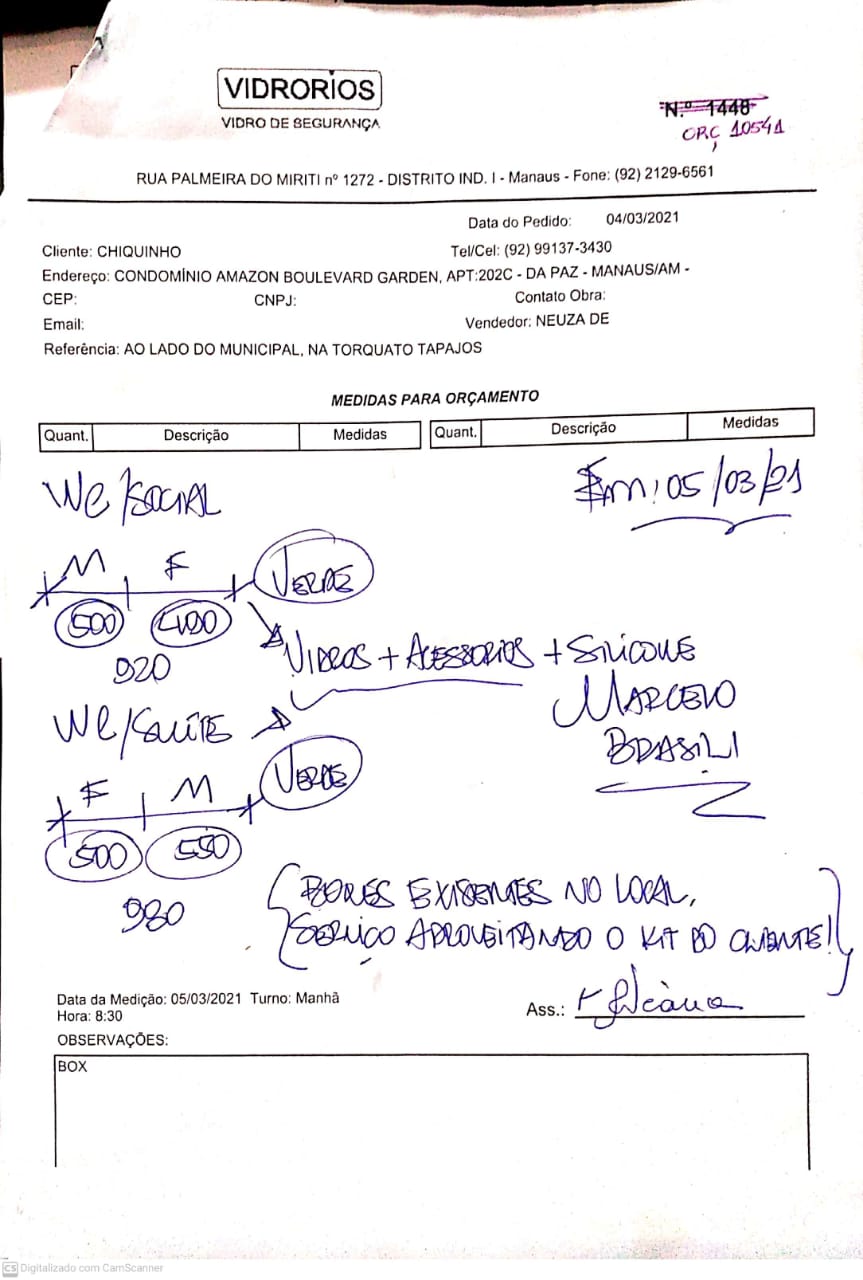 VIDRORIOS
VIDRO DE SEGURANÇA
N.º 1448
ORÇ 10541
RUA PALMEIRA DO MIRITI nº 1272 - DISTRITO IND. I - Manaus - Fone: (92) 2129-6561
Data do Pedido: 04/03/2021
Cliente: CHIQUINHO Tel/Cel: (92) 99137-3430
Endereço: CONDOMÍNIO AMAZON BOULEVARD GARDEN, APT:202C - DA PAZ - MANAUS/AM -
CEP: CNPJ: Contato Obra:
Email: Vendedor: NEUZA DE
Referência: AO LADO DO MUNICIPAL, NA TORQUATO TAPAJOS
MEDIDAS PARA ORÇAMENTO
Quant. Descrição Medidas Quant. Descrição Medidas
WC/SOCIAL
Em: 05/03/21
M F VERDE
500 400
920
VIDROS + ACESSORIOS + SILICONE
MARCELO
BRASILI
WC/SUÍTE
F M VERDE
500 550
980
BOXES EXISENTES NO LOCAL,
SERVIÇO APROVEITANDO O KIT DO CLIENTE!
Data da Medição: 05/03/2021 Turno: Manhã
Hora: 8:30
Ass.:
OBSERVAÇÕES:
BOX
CS Digitalizado com CamScanner